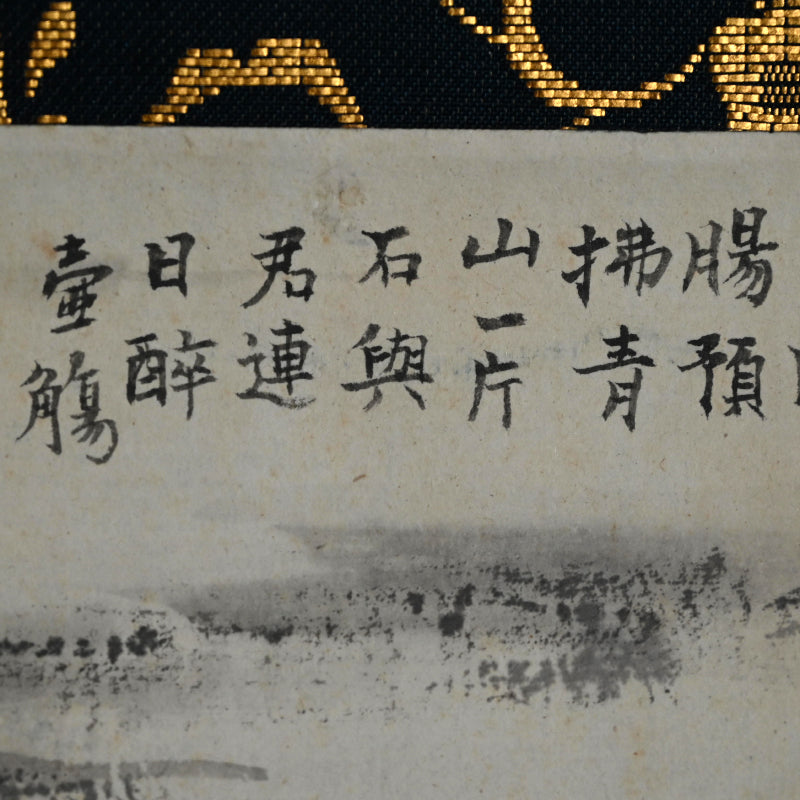 腸預
拂青
山一片
石與
君連
日醉
壷觴